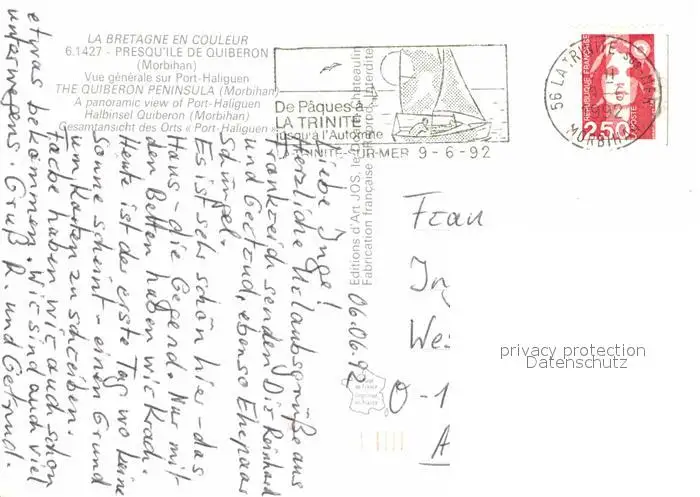 LA BRETAGNE EN COULEUR
6.1427 - PRESQU'ILE DE QUIBERON
(Morbihan)
Vue générale sur Port-Haliguen
THE QUIBERON PENINSULA (Morbihan)
A panoramic view of Port-Haliguen
Halbinsel Quiberon (Morbihan)
Gesamtansicht des Orts « Port-Haliguen »
De Pâques à
LA TRINITÉ
jusqu'à l'Automne
LA TRINITÉ-SUR-MER 9-6-92
56 LA TRINITE SUR MER
1992
MORBIHAN
REPUBLIQUE FRANÇAISE
2,50
POSTE
Editions d'Art JOS, le Châteaulin
Fabrication française Reproduction interdite
06.06.92
Liebe Inge!
Herzliche Urlaubsgrüße aus
Frankreich senden Dir Reinhard
und Gertrud, ebenso Ehepaar
Es ist sehr schön hier - das
Haus - die Gegend. Nur mit
den Betten haben wir Krach.
Heute ist der erste Tag wo keine
Sonne scheint - einen Grund
um Karten zu schreiben.
Farbe haben wir auch schon
etwas bekommen. Wir sind auch viel
unterwegens. Gruß R. und Gertrud.
Frau
In
We
O-1
A
privacy protection
Datenschutz